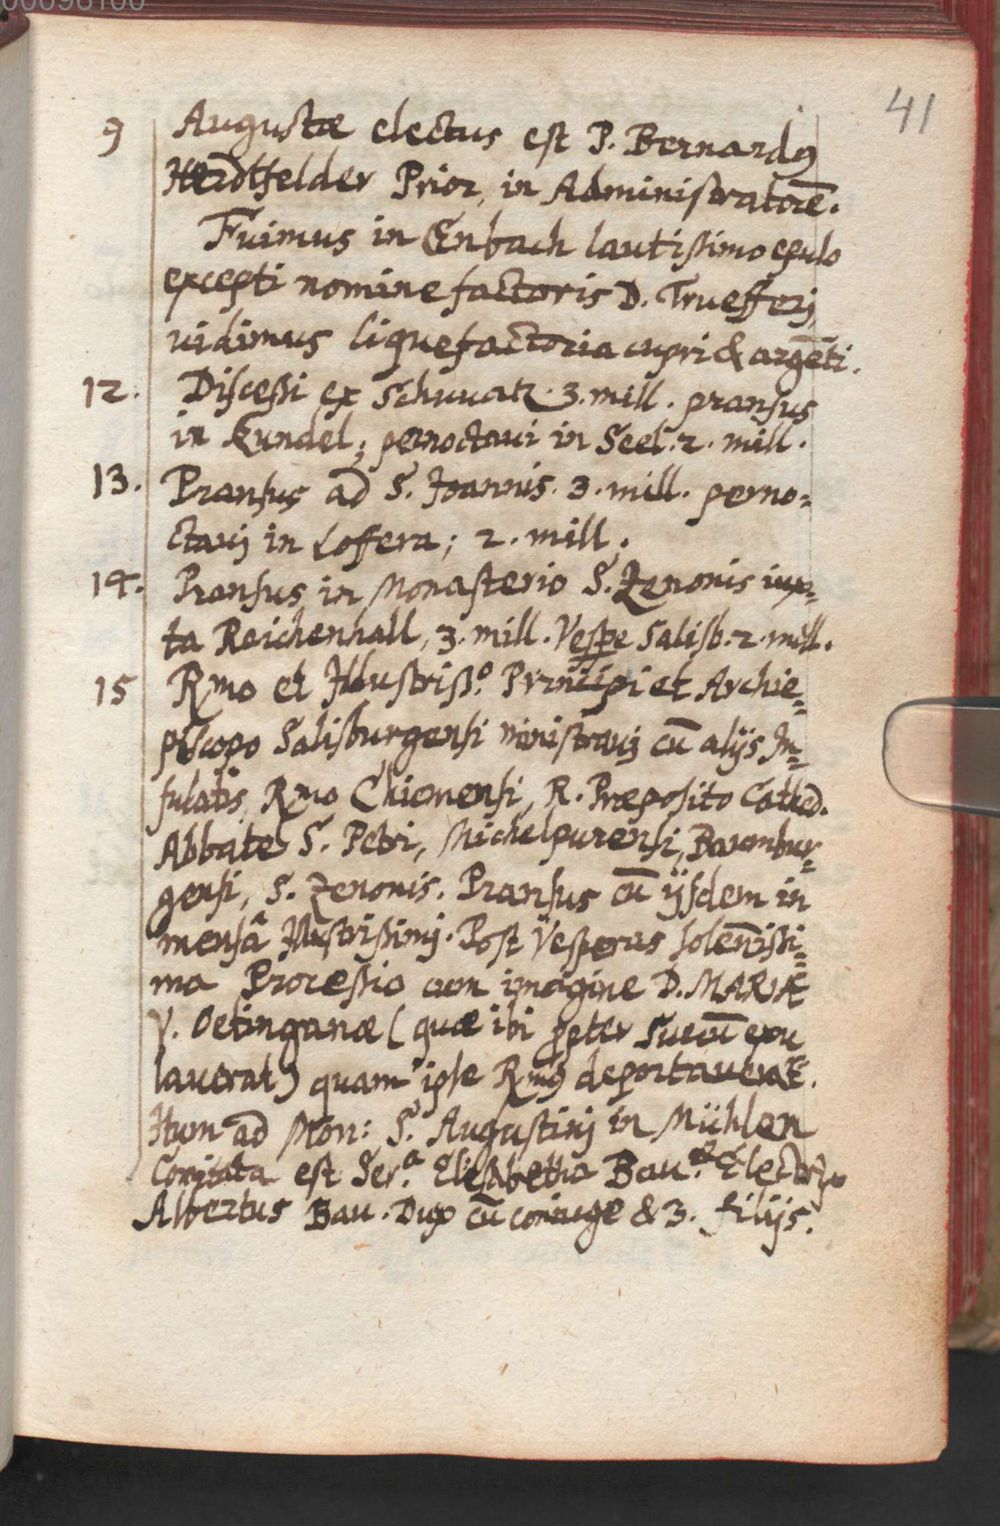 00098100
41
9 Augustæ electus est P. Bernardꝰ
Hertfelder Prior, in Administratorē.
Fuimus in Enbach lautißimo epulo
excepti nomine factoris D. Trueffery
uidimus liquefactoria cupri & argēti.
12. Discessi ex Schuuatz. 3. mill. pransus
in Kundel; pernoctaui in Seel. 2. mill.
13. Pransus ad S. Joannis. 3. mill. perno=
ctauj in Loffera; 2. mill.
14. Pransus in Monasterio S. Zenonis iux=
ta Reichenhall, 3. mill. Vespe Salisb. 2. mill.
15 Rmo et Illustriß.º Principi et Archie=
piscopo Salisburgensi ministrauj cū alijs In=
fulatis, Rmo Chiemensi, R. Præposito Cathed.
Abbate S. Petri, Michelpurensi, Baumbur=
gensi, S. Zenonis. Pransus cū ijsdem in
mensâ Illustrissimj. Post Vesperas solenißi=
ma Processio cum imagine D. MARIÆ
V. Oetinganæ (quæ ibi ꝓpter Suecū exu
lauerat) quam ipse Rmꝰ deportauerat.
Itum ad Mon: S. Augustinj in Mühlen
Comitata est Ser.ª Elisabetha Bau. Electrix
Albertus Bau. Dux cū coniuge & 3. filijs.